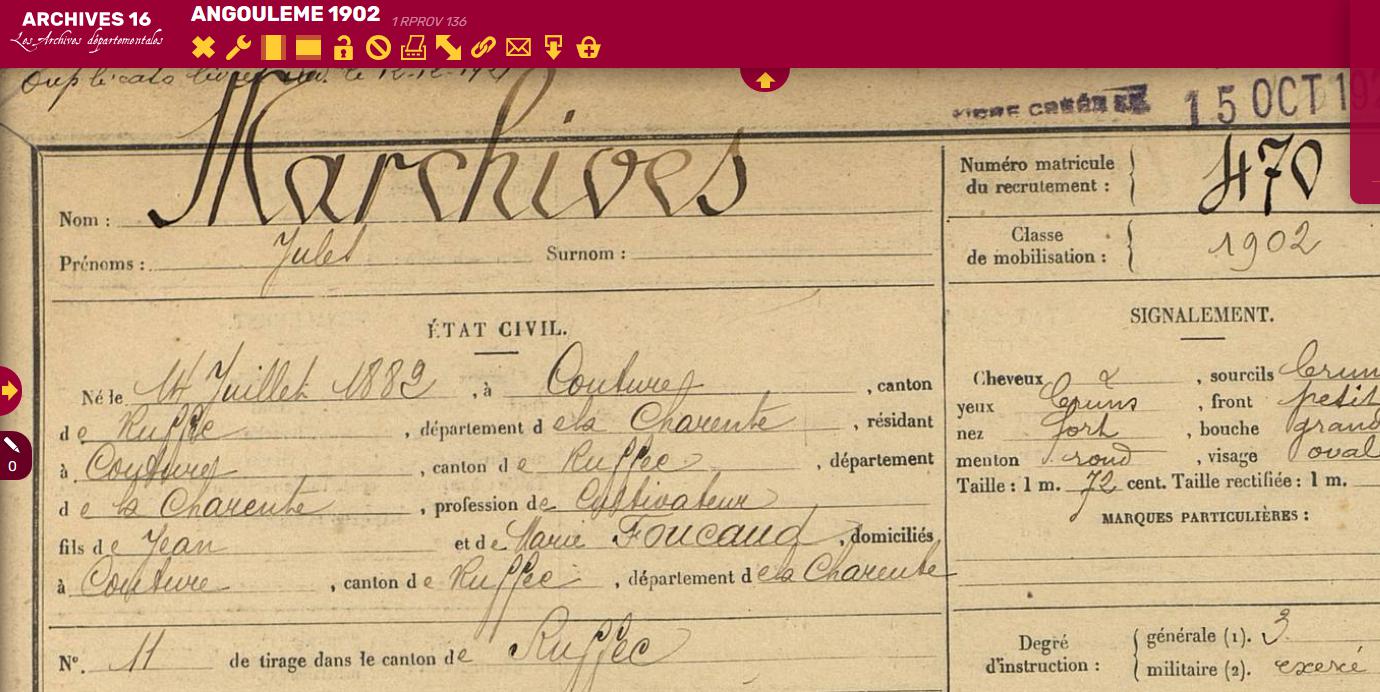 ARCHIVES 16
Les Archives départementales
ANGOULEME 1902 1 RPROV 136
le 12-12-1921
15 OCT 19
Nom : Marchives
Prénoms : Jules Surnom :
Numéro matricule du recrutement : 470
Classe de mobilisation : 1902
ÉTAT CIVIL.
Né le 14 Juillet 1882, à Couture, canton
de Ruffec, département de la Charente, résidant
à Couture, canton de Ruffec, département
de la Charente, profession de Cultivateur
fils de Jean et de Marie Foucaud, domiciliés
à Couture, canton de Ruffec, département de la Charente
No. 11 de tirage dans le canton de Ruffec
SIGNALEMENT.
Cheveux &, sourcils brun
yeux bruns, front petit
nez fort, bouche grand
menton rond, visage oval
Taille : 1 m. 72 cent. Taille rectifiée : 1 m.
MARQUES PARTICULIÈRES :
Degré d'instruction : générale (1). 3
militaire (2). exercé
0